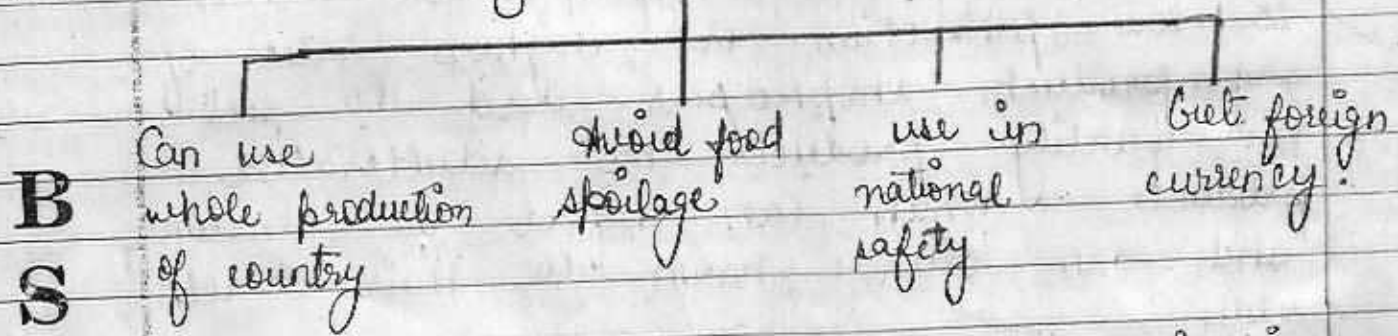 Can use
whole production
of country
Avoid food
spoilage
use in
national
safety
Get foreign
currency.
B
S